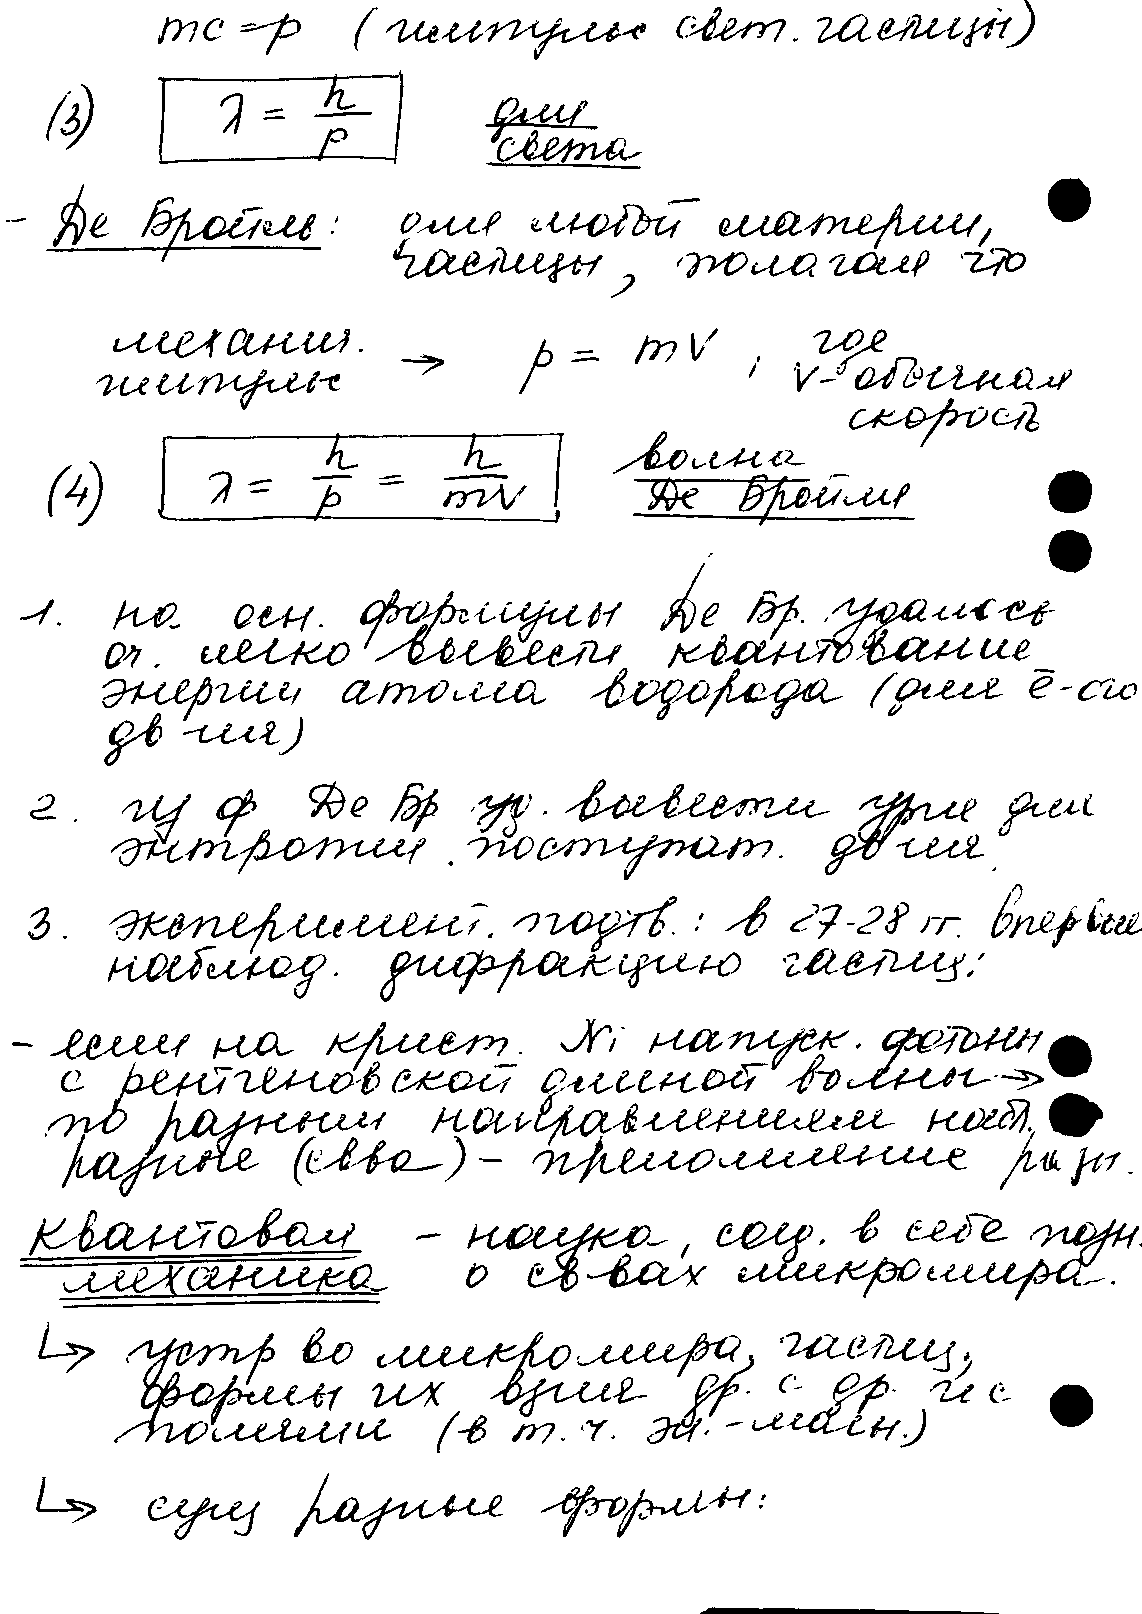 mc = p (импульс свет. частицы)
(3) λ = h/p для
света
- Де Бройль: для любой материи,
частицы, полагая что
механич. → p = mV, где
импульс V - обычная
скорость
(4) λ = h/p = h/mV волна
Де Бройля
1. на осн. формулы Де Бр. удалось
оч. легко вывести квантование
энергии атома водорода (для ē-ого
дв ия)
2. из ф Де Бр уд. вывести ур ие для
энтропии поступат. дв ия
3. эксперимент. подтв.: в 27-28 гг. впервые
наблюд. дифракцию частиц:
- если на крист. Ni напуск. фотоны
с рентгеновской длиной волны →
по разным направлениям наб.
разные (св ва) - преломление разн.
Квантовая - наука, соед. в себе позн.
механика о св вах микромира.
↳ устр во микромира, частиц,
формы их вз ия др. с др. и с
полями (в т. ч. эл.-магн.)
↳ сущ разные формы: